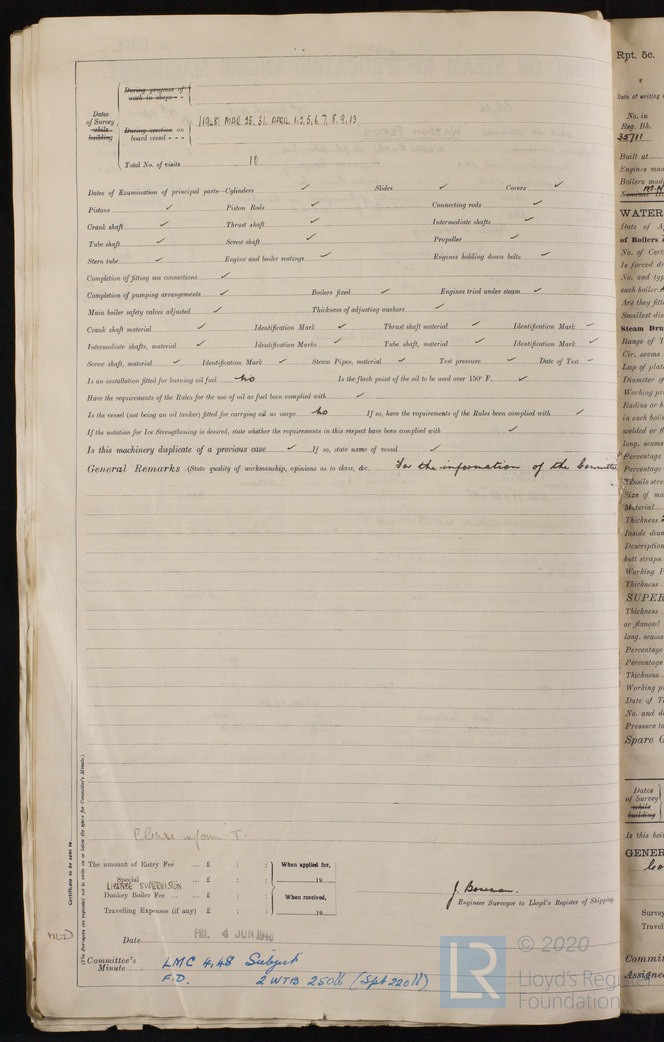 During progress of
work in shops - -
Dates
of Survey
while
building
During erection on
board vessel - - -
(1948) MAR 25, 31, APRIL 1, 2, 5, 6, 7, 8, 9, 13
Total No. of visits 10
Dates of Examination of principal parts—Cylinders ✓ Slides ✓ Covers ✓
Pistons ✓ Piston Rods ✓ Connecting rods ✓
Crank shaft ✓ Thrust shaft ✓ Intermediate shafts ✓
Tube shaft ✓ Screw shaft ✓ Propeller ✓
Stern tube ✓ Engine and boiler seatings ✓ Engines holding down bolts ✓
Completion of fitting sea connections ✓
Completion of pumping arrangements ✓ Boilers fixed ✓ Engines tried under steam ✓
Main boiler safety valves adjusted ✓ Thickness of adjusting washers ✓
Crank shaft material ✓ Identification Mark ✓ Thrust shaft material ✓ Identification Mark ✓
Intermediate shafts, material ✓ Identification Marks ✓ Tube shaft, material ✓ Identification Mark ✓
Screw shaft, material ✓ Identification Mark ✓ Steam Pipes, material ✓ Test pressure ✓ Date of Test ✓
Is an installation fitted for burning oil fuel no Is the flash point of the oil to be used over 150° F. ✓
Have the requirements of the Rules for the use of oil as fuel been complied with ✓
Is the vessel (not being an oil tanker) fitted for carrying oil as cargo no If so, have the requirements of the Rules been complied with ✓
If the notation for Ice Strengthening is desired, state whether the requirements in this respect have been complied with ✓
Is this machinery duplicate of a previous case ✓ If so, state name of vessel ✓
General Remarks (State quality of workmanship, opinions as to class, &c. For the information of the Committee
Please inform T.
The amount of Entry Fee ... £ : : When applied for,
Special £ : : 19
LICENCE SUPERVISION
Donkey Boiler Fee ... ... £ : : When received,
Travelling Expenses (if any) £ : : 19
J. Bowman.
Engineer Surveyor to Lloyd's Register of Shipping.
Date FRI. 4 JUN 1948
Committee's
Minute
LMC 4,48 Subject
F.D. 2 WTB 250 lb (Spt 220 lb)
Certificate to be sent to
(The Surveyors are requested not to write on or below the space for Committee's Minute.)
© 2020
LR
Lloyd's Register
Foundation
Rpt. 5c.
Date of writing
No. in
Reg. Bk.
35711
Built at
Engines mad
Boilers mad
WATER
Date of A
of Boilers
No. of Cert
Is forced dr
No. and typ
each boiler
Are they fitt
Smallest dis
Steam Dru
Range of T
Cir. seams
Lap of plat
Diameter of
Working pr
Radius or h
in each boile
welded or fl
long. seams
Percentage
Percentage
Tensile stre
Size of ma
Material
Thickness
Inside diam
Description
butt straps
Working P
Thickness
SUPER
Thickness
or flanged
long. seams
Percentage
Percentage
Thickness
Working p
Date of T
No. and d
Pressure to
Spare G
Dates
of Survey
while
building
Is this boi
GENER
Survey
Travel
Commit
Assigned